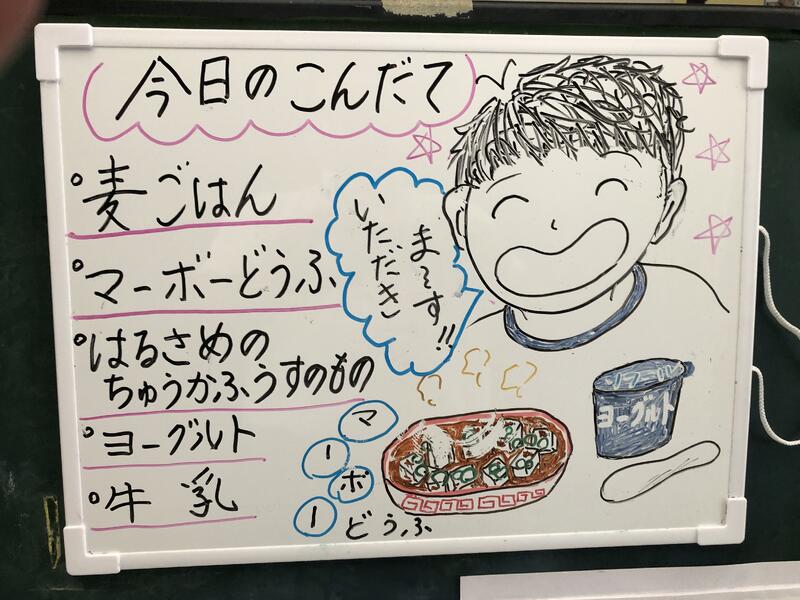 今日のこんだて
麦ごはん
マーボーどうふ
はるさめの
ちゅうかふうすのもの
ヨーグルト
牛乳
いただき
まーす!!
マーボー
どうふ
ソフール
ヨーグルト